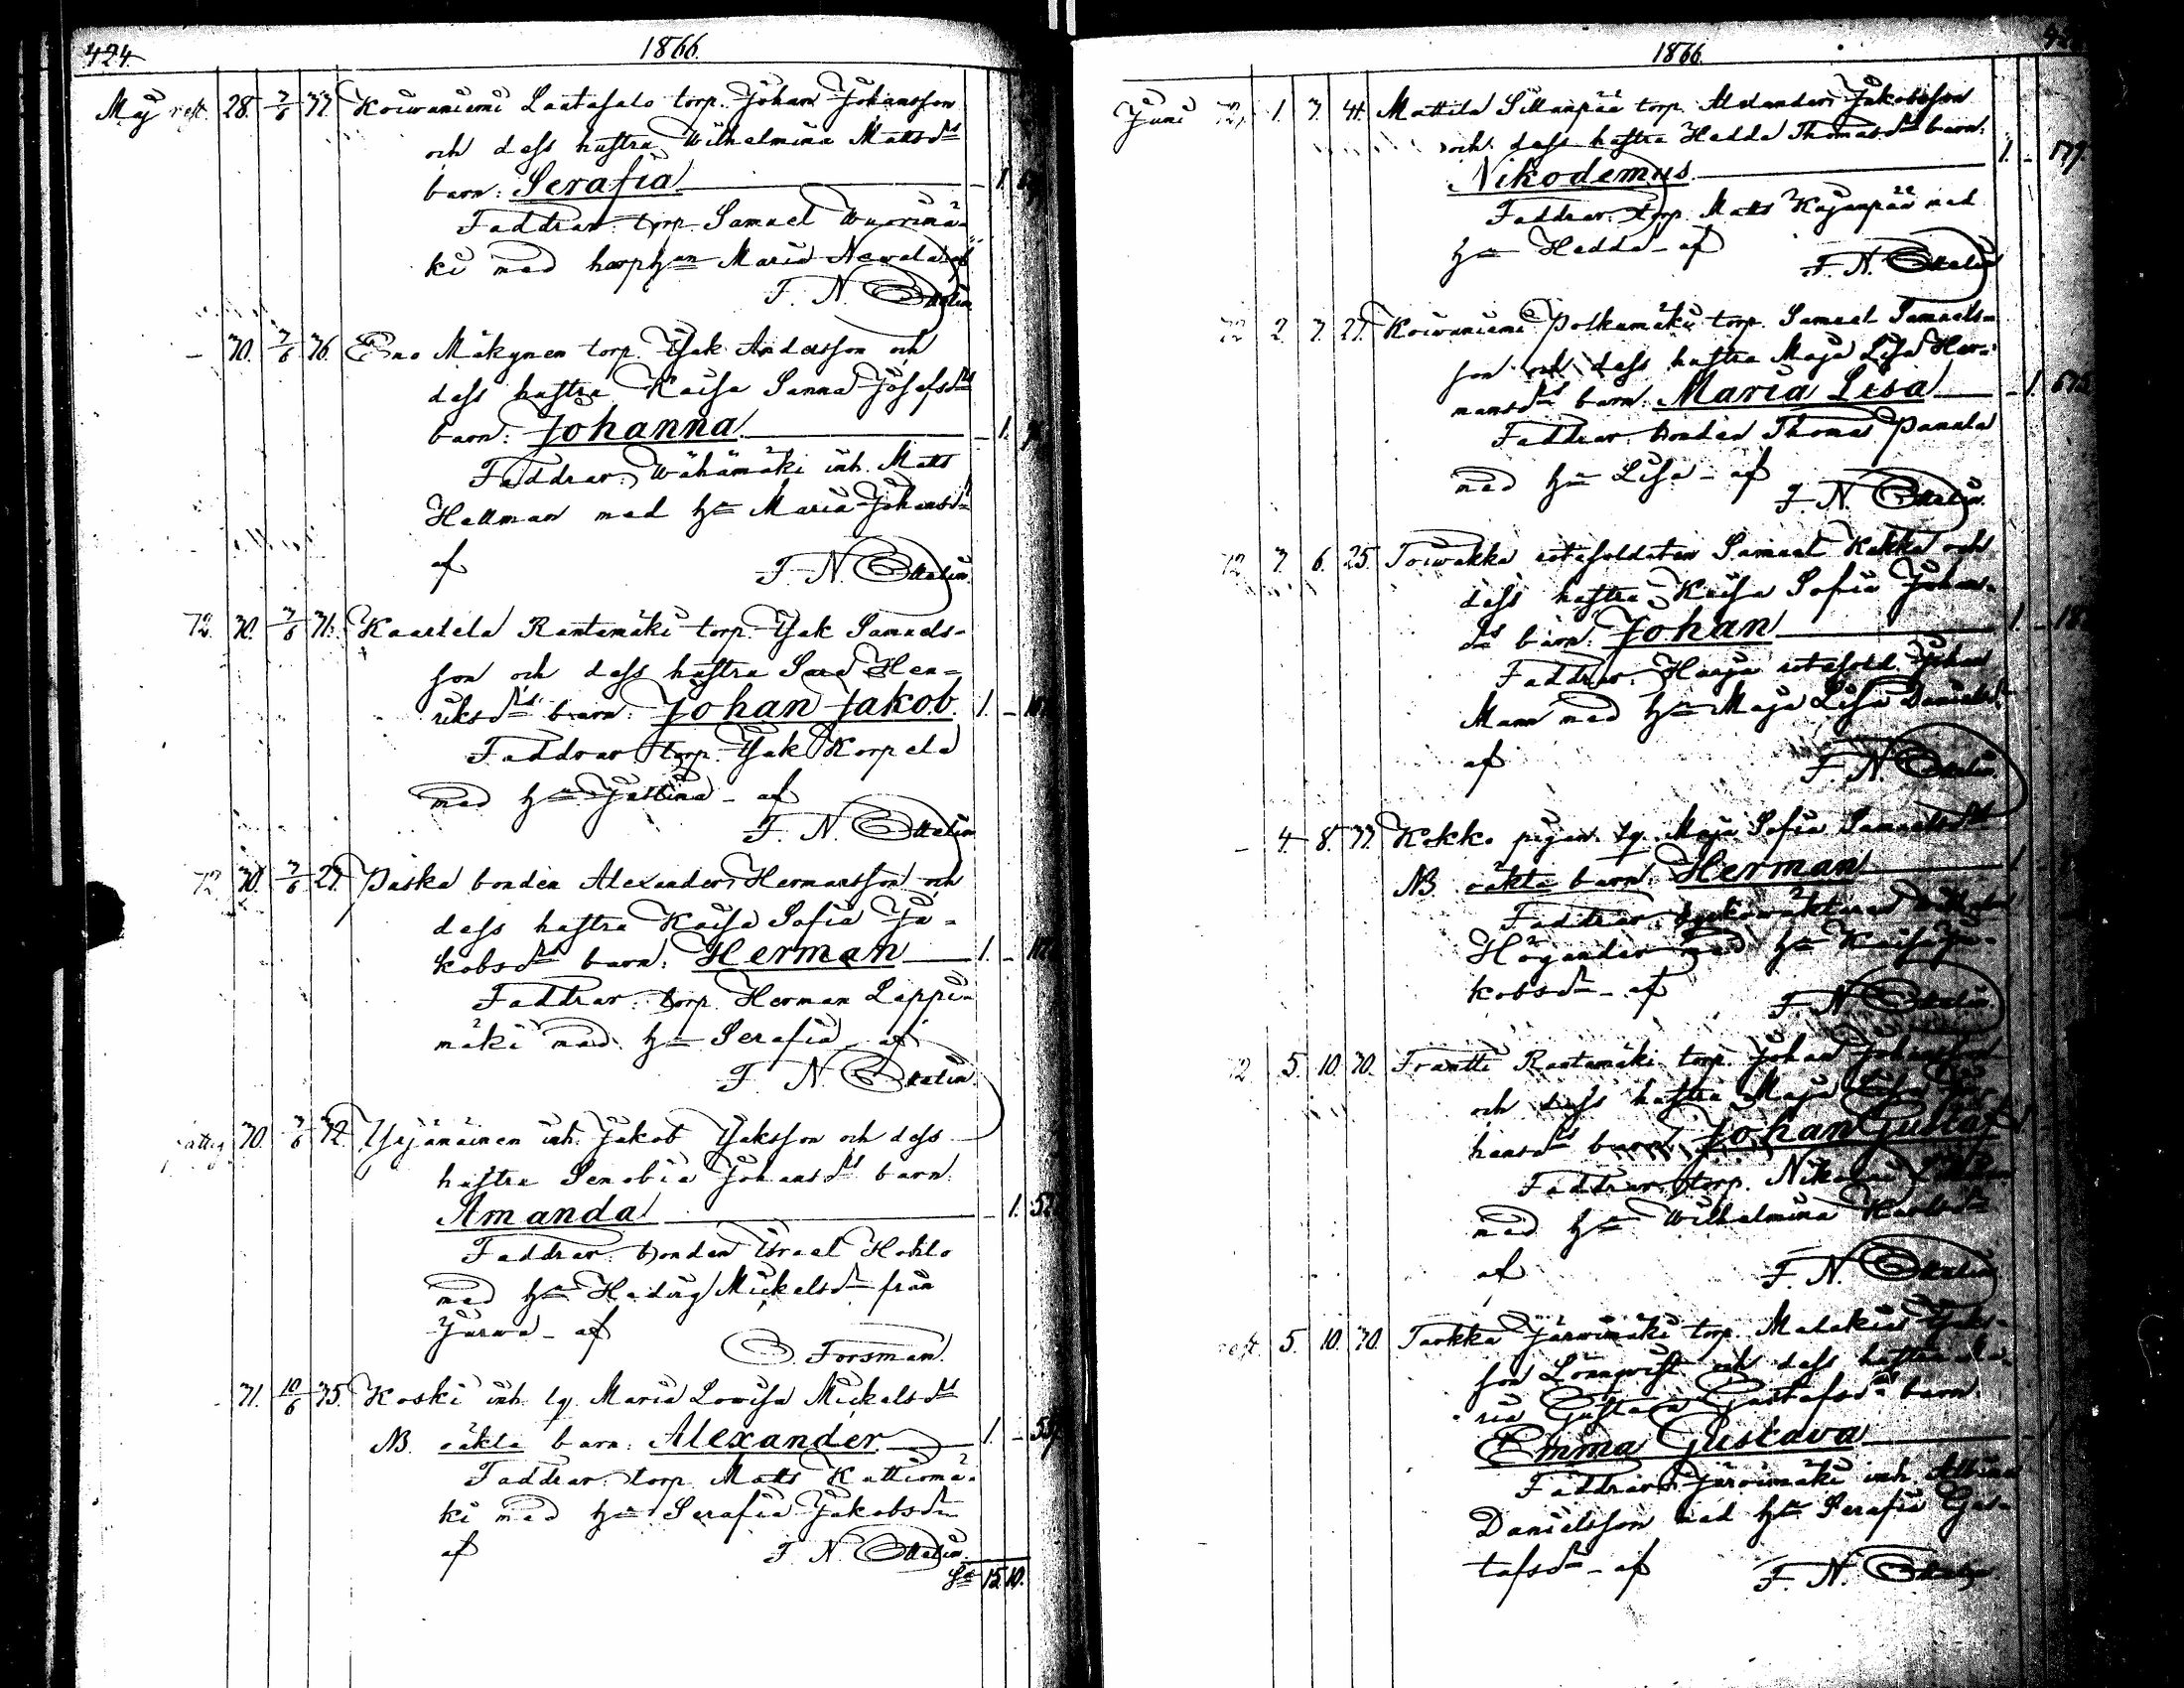 424
1866.
May rest. 28. 3/6 37. Koiwuniemi Laatasalo torp. Johan Johansson
och dess hustru Wilhelmina Mattsdrs
barn: Serafia 1.
Faddrar: torp. Samuel Wuorimä-
ki med Maria Newala af
F. N.
- 30. 3/6 36. Eno Mäkynen torp. Isak Andersson och
dess hustru Kaisa Sanna Josefsdrs
barn: Johanna 1.
Faddrar: Wähämäki inh. Matts
Hellman med hu Maria Johansdr
af F. N.
72. 30. 3/6 31. Kaartela Rantamäki torp. Isak Samuels-
son och dess hustru Sara Hen-
riksdrs barn: Johan Jakob. 1. -
Faddrar torp. Isak Korpela
med hu Justina - af
F. N.
72 30. 3/6 27. Paska bonden Alexander Hermansson och
dess hustru Kaisa Sofia Ja-
kobsdrs barn: Herman 1. -
Faddrar: torp. Herman Lappi-
mäki med hu Serafia af
F. N.
30. 3/6 32. Yrjänäinen inh. Jakob Isaksson och dess
hustru Senobia Johansdrs barn:
Amanda - 1.
Faddrar: bonden Israel Hohlo
med hu Hedvig Mickelsdr från
Jurva - af
Forsman.
31. 10/6 35. Koski inh. lq. Maria Lovisa Mickelsdrs
NB. oäkta barn: Alexander 1. -
Faddrar: torp. Matts Kattiomä-
ki med hu Serafia Jakobsdr
af F. N.
Sa 15.10.
1866.
Juni 72, 1. 3. 41. Mattila Sillanpää torp. Alexander Jakobsson
och dess hustru Hedda Thomasdrs barn:
Nikodemus 1. - 177.
Faddrar: torp. Matts Kajanpää med
hu Hedda - af
F. N.
72 2. 3. 27. Koiwuniemi Polkumäki torp. Samuel Samuels-
son och dess hustru Maja Lisa Her-
mansdrs barn: Maria Lisa - 1.
Faddrar: bonden Thomas Panula
med hu Lisa - af
F. N.
72 3. 6. 25. Toiwakka rotesoldaten Samuel Kukku och
dess hustru Kaisa Sofia Johans-
drs barn: Johan 1. -
Faddrar: Harju rotesold. Johan
Mann med hu Maja Lisa Danielsdr
af F. N.
- 4. 8. 37. Kokko pigan lq. Maja Sofia Samuelsdrs
NB. oäkta barn: Herman 1
Faddrar:
Högander med hu Kaisa Ja-
kobsdr - af F. N.
72 5. 10. 30. Frantti Rantamäki torp. Johan Johansson
och dess hustru Maja Lisa Jo-
hansdrs barn: Johan Gustaf
Faddrar: torp.
med hu Wilhelmina
af F. N.
rest. 5. 10. 30. Tarkka Järwimäki torp. Malakias Isaks-
son Lönnqvist och dess hustru Ma-
ria Gustava Gustafsdrs barn:
Emma Gustava
Faddrar: Järwimäki inh.
Danielsson med hu Serafia Gus-
tafsdr - af F. N.